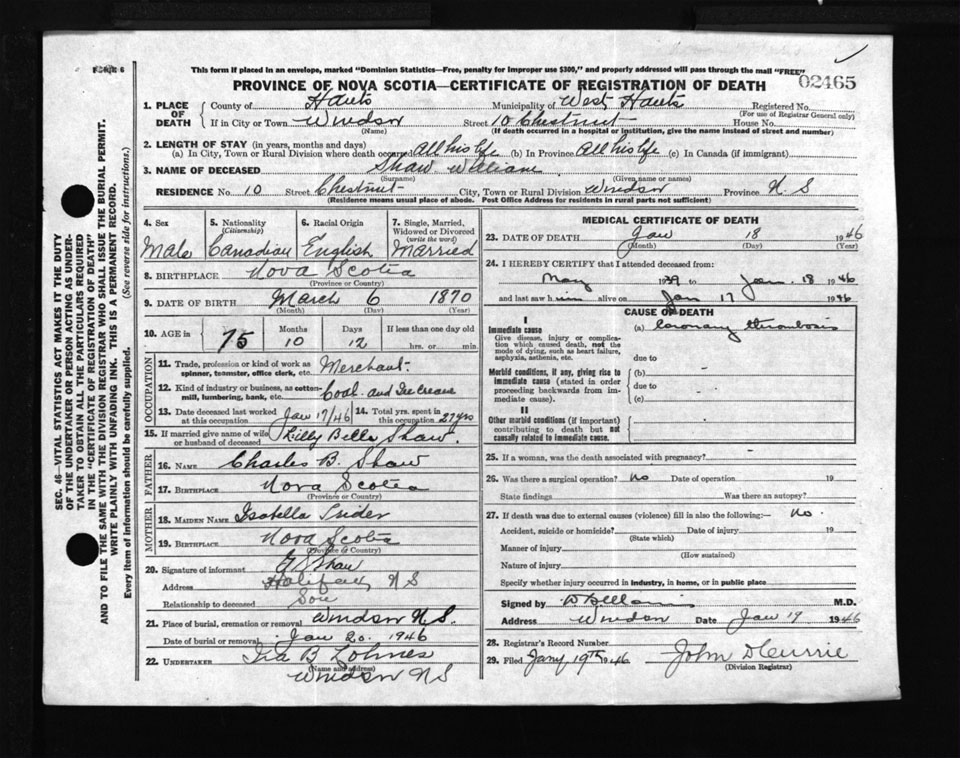 FORM 6
This form if placed in an envelope, marked "Dominion Statistics—Free, penalty for improper use $300," and properly addressed will pass through the mail "FREE"
PROVINCE OF NOVA SCOTIA—CERTIFICATE OF REGISTRATION OF DEATH
02465
1. PLACE OF DEATH County of Hants Municipality of West Hants Registered No.
(For use of Registrar General only)
If in City or Town Windsor Street 10 Chestnut House No.
(Name) (If death occurred in a hospital or institution, give the name instead of street and number)
2. LENGTH OF STAY (in years, months and days)
(a) In City, Town or Rural Division where death occurred All his life (b) In Province All his life (c) In Canada (if immigrant)
3. NAME OF DECEASED Shaw William
(Surname) (Given name or names)
RESIDENCE No. 10 Street Chestnut City, Town or Rural Division Windsor Province N S
(Residence means usual place of abode. Post Office Address for residents in rural parts not sufficient)
4. Sex Male
5. Nationality (Citizenship) Canadian
6. Racial Origin English
7. Single, Married, Widowed or Divorced (write the word) Married
8. BIRTHPLACE Nova Scotia
(Province or Country)
9. DATE OF BIRTH March 6 1870
(Month) (Day) (Year)
10. AGE in 75 Months 10 Days 12 If less than one day old hrs. or min
OCCUPATION
11. Trade, profession or kind of work as spinner, teamster, office clerk, etc. Merchant
12. Kind of industry or business, as cotton-mill, lumbering, bank, etc. Coal and Ice Cream
13. Date deceased last worked at this occupation Jan 17/46 14. Total yrs. spent in this occupation 27 yrs
15. If married give name of wife or husband of deceased Lilly Bella Shaw
FATHER
16. NAME Charles B. Shaw
17. BIRTHPLACE Nova Scotia
(Province or Country)
MOTHER
18. MAIDEN NAME Isabella
19. BIRTHPLACE Nova Scotia
(Province or Country)
20. Signature of informant Shaw
Address Halifax N S
Relationship to deceased Son
21. Place of burial, cremation or removal Windsor N.S.
Date of burial or removal Jan 20. 1946
22. UNDERTAKER Ira B Lohnes
(Name and address)
Windsor N S
MEDICAL CERTIFICATE OF DEATH
23. DATE OF DEATH Jan 18 1946
(Month) (Day) (Year)
24. I HEREBY CERTIFY that I attended deceased from:
May 1939 to Jan. 18 1946
and last saw him alive on Jan 17 1946
CAUSE OF DEATH
I
Immediate cause (a) Coronary thrombosis
Give disease, injury or complication which caused death, not the mode of dying, such as heart failure, asphyxia, asthenia, etc.
due to
Morbid conditions, if any, giving rise to immediate cause (stated in order proceeding backwards from immediate cause). (b)
due to
(c)
II
Other morbid conditions (if important) contributing to death but not causally related to immediate cause.
25. If a woman, was the death associated with pregnancy?
26. Was there a surgical operation? no Date of operation 19
State findings Was there an autopsy?
27. If death was due to external causes (violence) fill in also the following: no.
Accident, suicide or homicide? Date of injury 19
(State which)
Manner of injury
(How sustained)
Nature of injury
Specify whether injury occurred in industry, in home, or in public place
Signed by M.D.
Address Windsor Date Jan 19 1946
28. Registrar's Record Number
29. Filed Jany 19th 1946 John D Currie
(Division Registrar)
SEC. 46—VITAL STATISTICS ACT MAKES IT THE DUTY
OF THE UNDERTAKER OR PERSON ACTING AS UNDER-
TAKER TO OBTAIN ALL THE PARTICULARS REQUIRED
IN THE "CERTIFICATE OF REGISTRATION OF DEATH"
AND TO FILE THE SAME WITH THE DIVISION REGISTRAR WHO SHALL ISSUE THE BURIAL PERMIT.
WRITE PLAINLY WITH UNFADING INK. THIS IS A PERMANENT RECORD.
Every item of information should be carefully supplied. (See reverse side for instructions.)